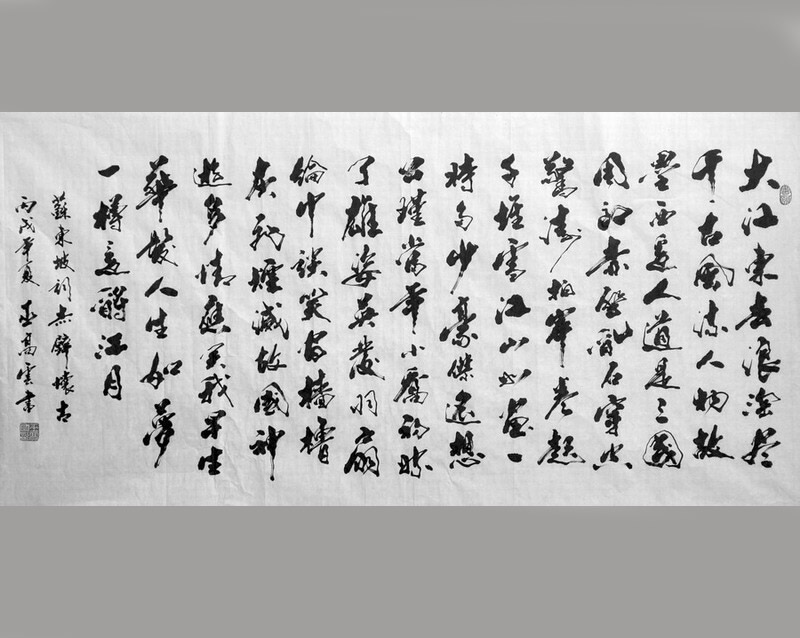 大江東去浪淘盡
千古風流人物故
壘西邊人道是三國
周郎赤壁亂石穿空
驚濤拍岸卷起
千堆雪江山如畫一
時多少豪傑遙想
公瑾當年小喬初嫁
了雄姿英發羽扇
綸巾談笑間檣櫓
灰飛煙滅故國神
遊多情應笑我早生
華髮人生如夢
一樽還酹江月
蘇東坡詞赤壁懷古
丙戌年夏 高雲書